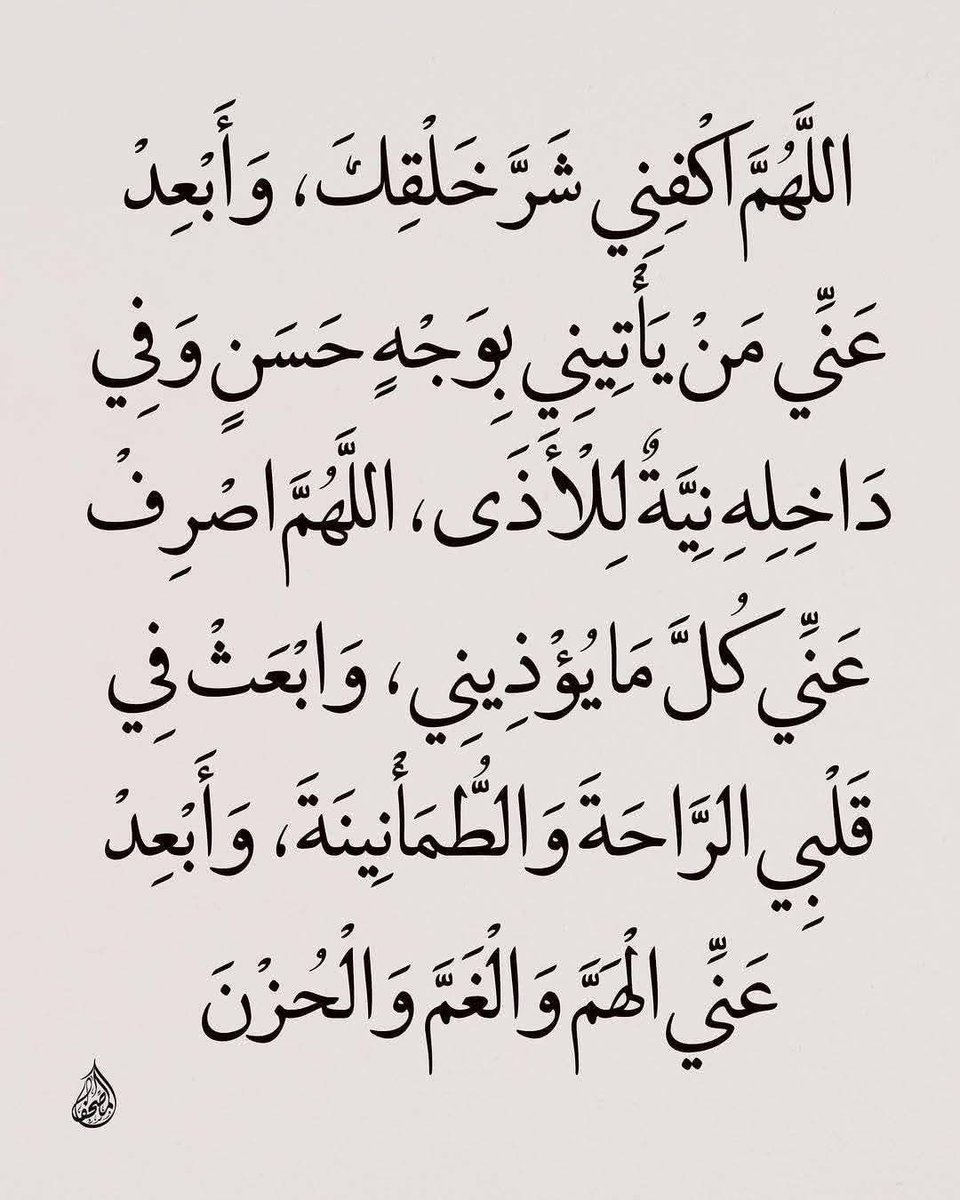 اللَّهُمَّ اكْفِنِي شَرَّ خَلْقِكَ، وَأَبْعِدْ
عَنِّي مَنْ يَأْتِينِي بِوَجْهٍ حَسَنٍ وَفِي
دَاخِلِهِ نِيَّةٌ لِلْأَذَى، اللَّهُمَّ اصْرِفْ
عَنِّي كُلَّ مَا يُؤْذِينِي، وَابْعَثْ فِي
قَلْبِي الرَّاحَةَ وَالطُّمَأْنِينَةَ، وَأَبْعِدْ
عَنِّي الْهَمَّ وَالْغَمَّ وَالْحُزْنَ